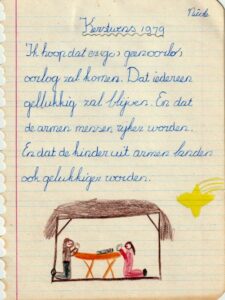 Kerstwens 1979
Ik hoop dat
oorlog zal komen. Dat iedereen
gellukkig zal blijven. En dat
de armen mensen rijker worden.
En dat de kinder uit armen landen
ook gelukkiger worden.